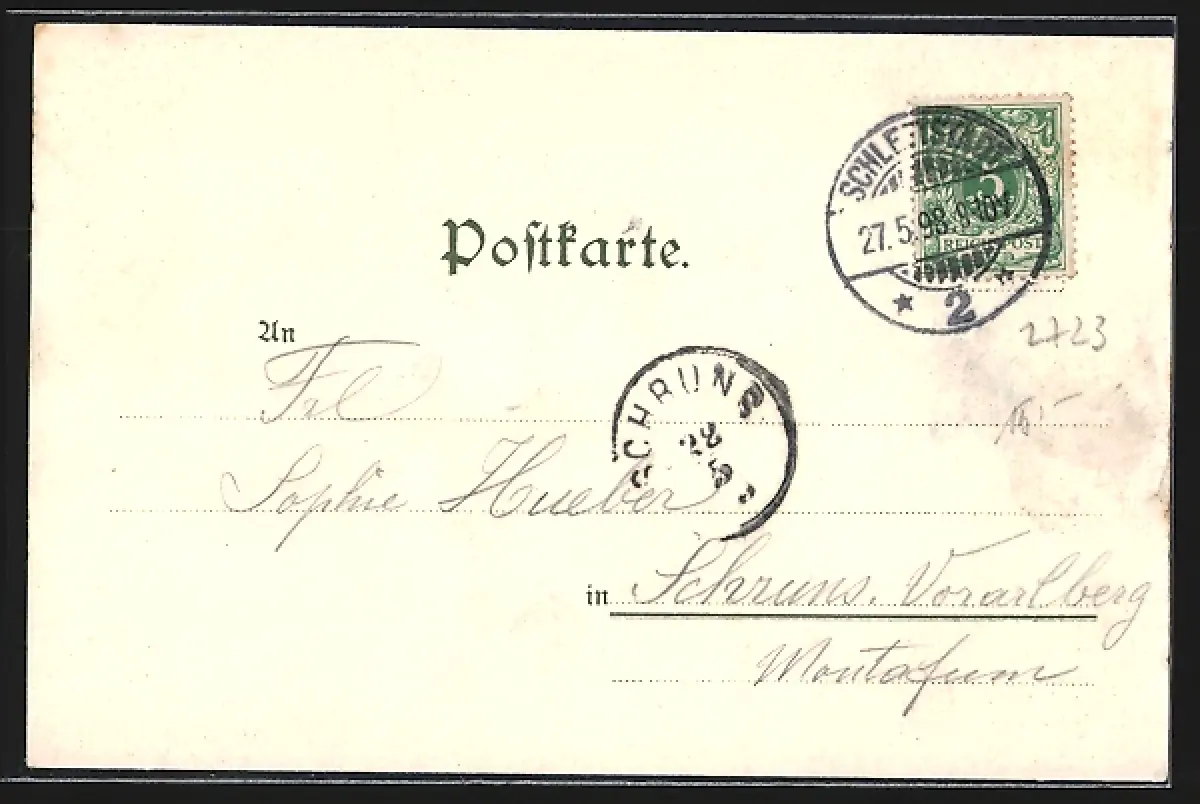 SCHLETTSTADT
27.5.98. 9-10V
* 2 *
5
REICHSPOST
Postkarte.
2723
An
Frl
SCHRUNS
28
5
Sophie Hueber
in Schruns. Vorarlberg
Montafum